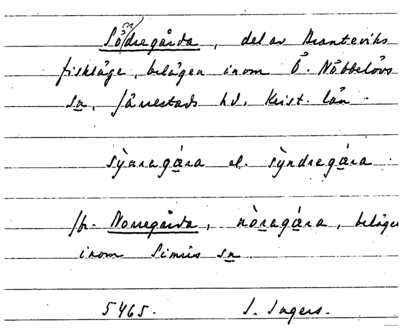 Sö(n)dregårda, del av Branteviks
fiskläge, belägen inom Ö. Nöbbelövs
sn, Järrestads hd. Krist. län.
sỳnragára el. sỳndregára
jfr. Norregårda, nòragára, beläge
inom Simris sn.
5465. I. Ingers.